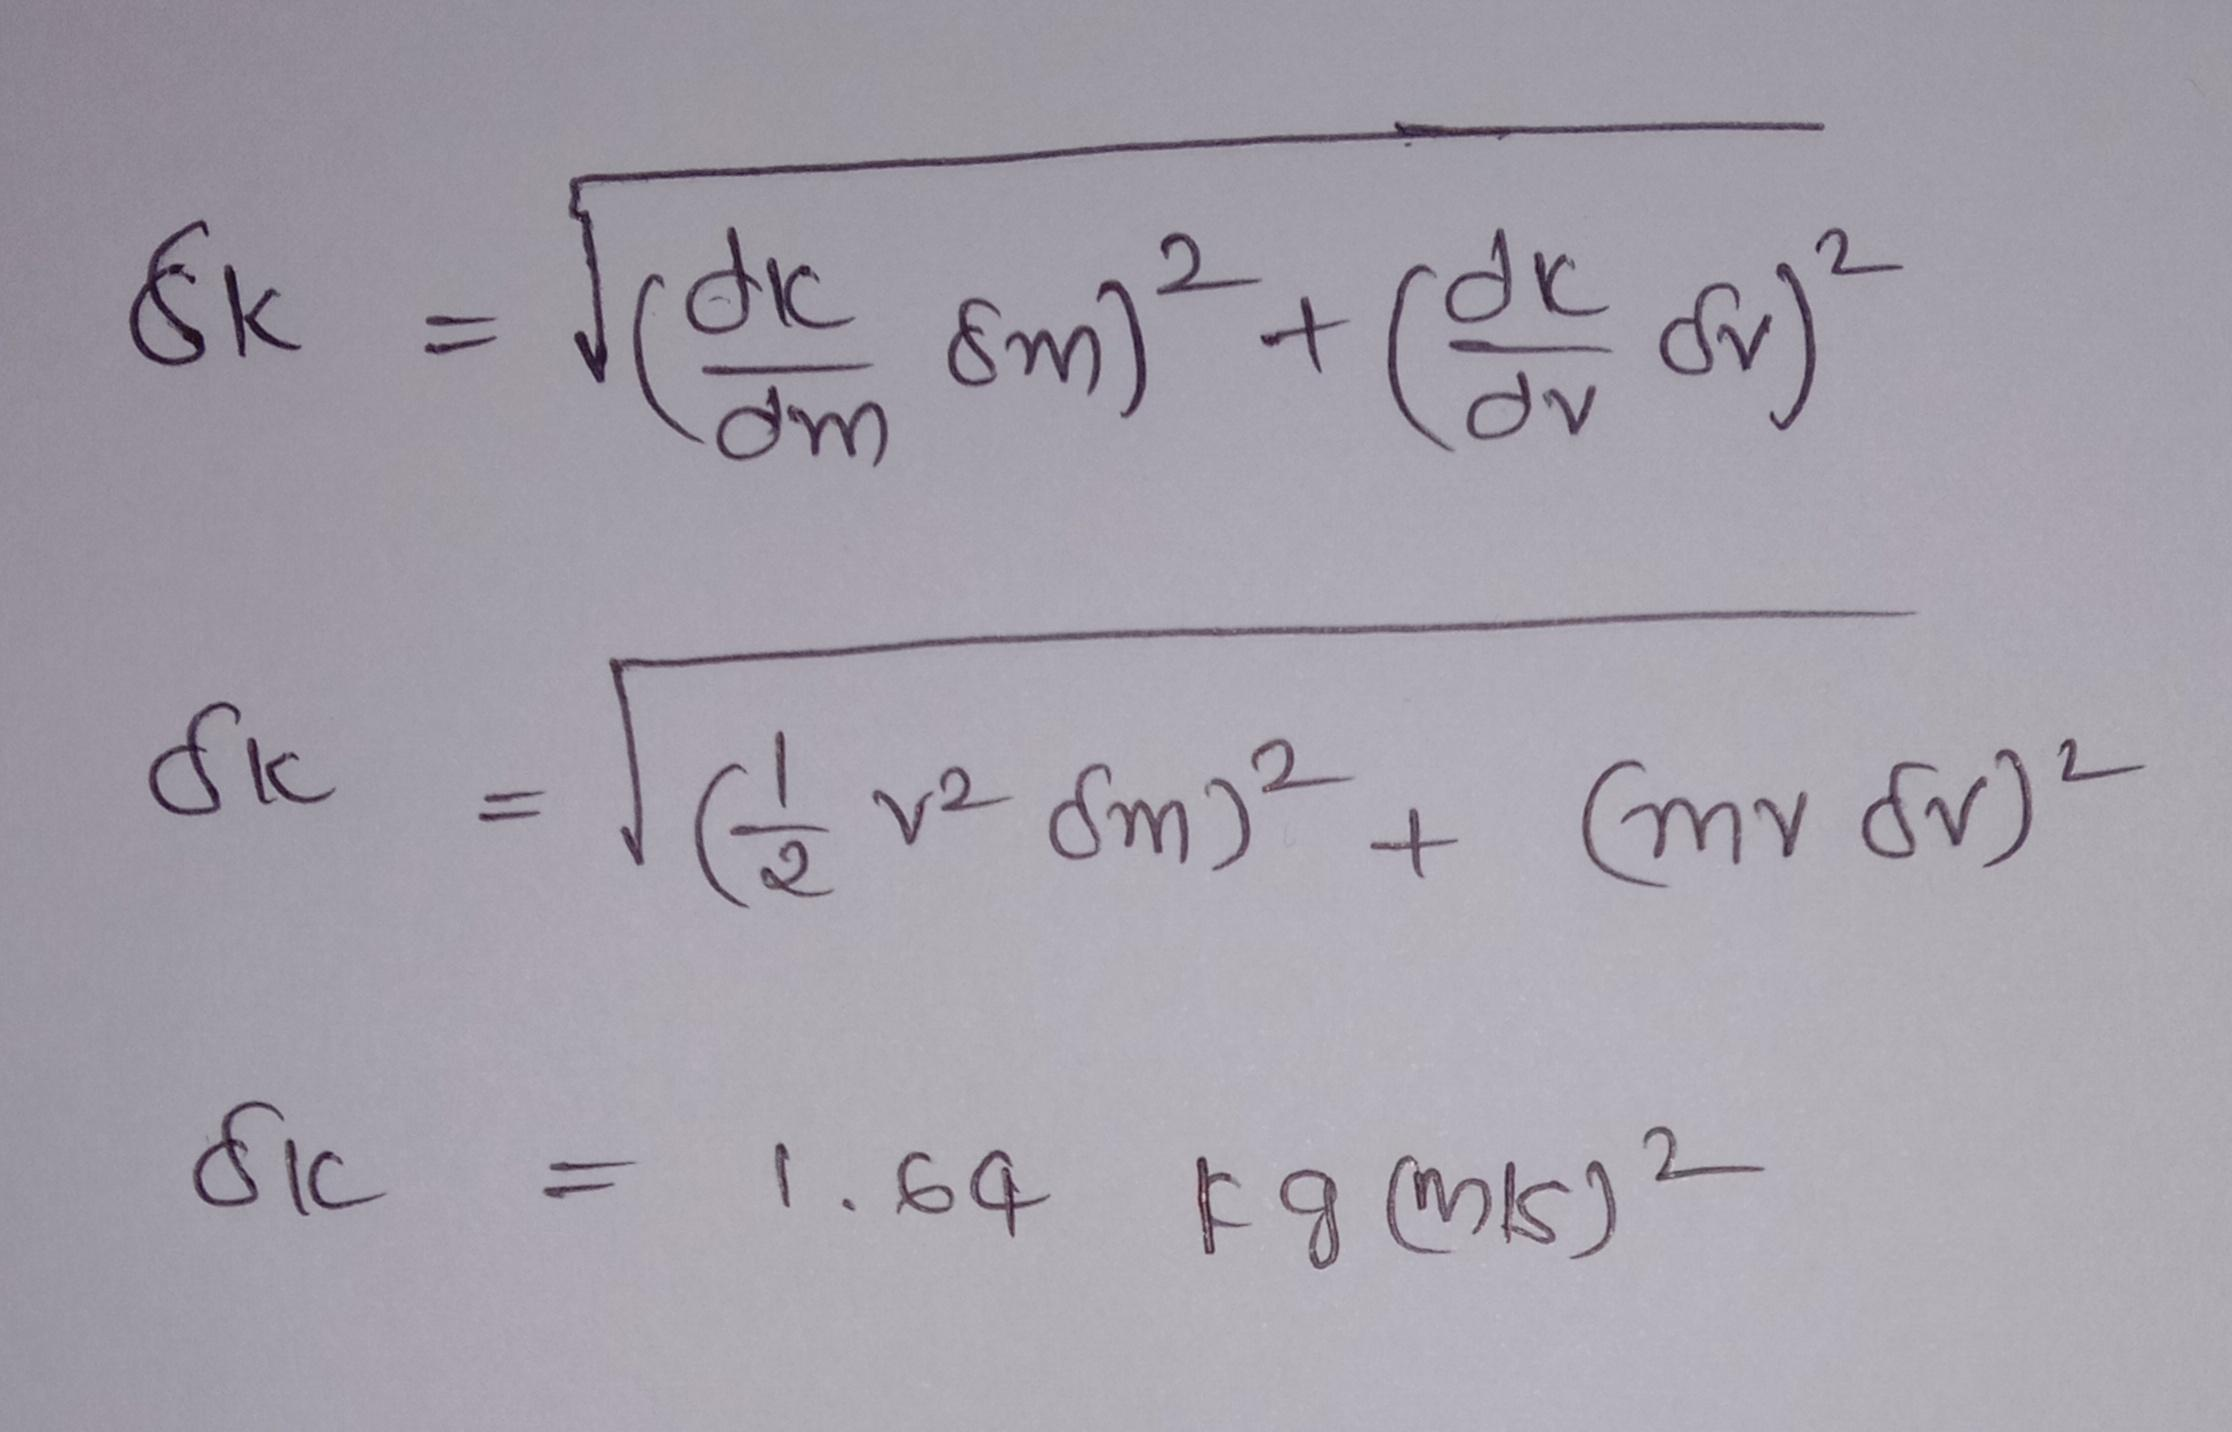 δK = √((dK/dm δm)² + (dK/dv δv)²)
δK = √((1/2 v² δm)² + (mv δv)²)
δK = 1.64 kg (m/s)²